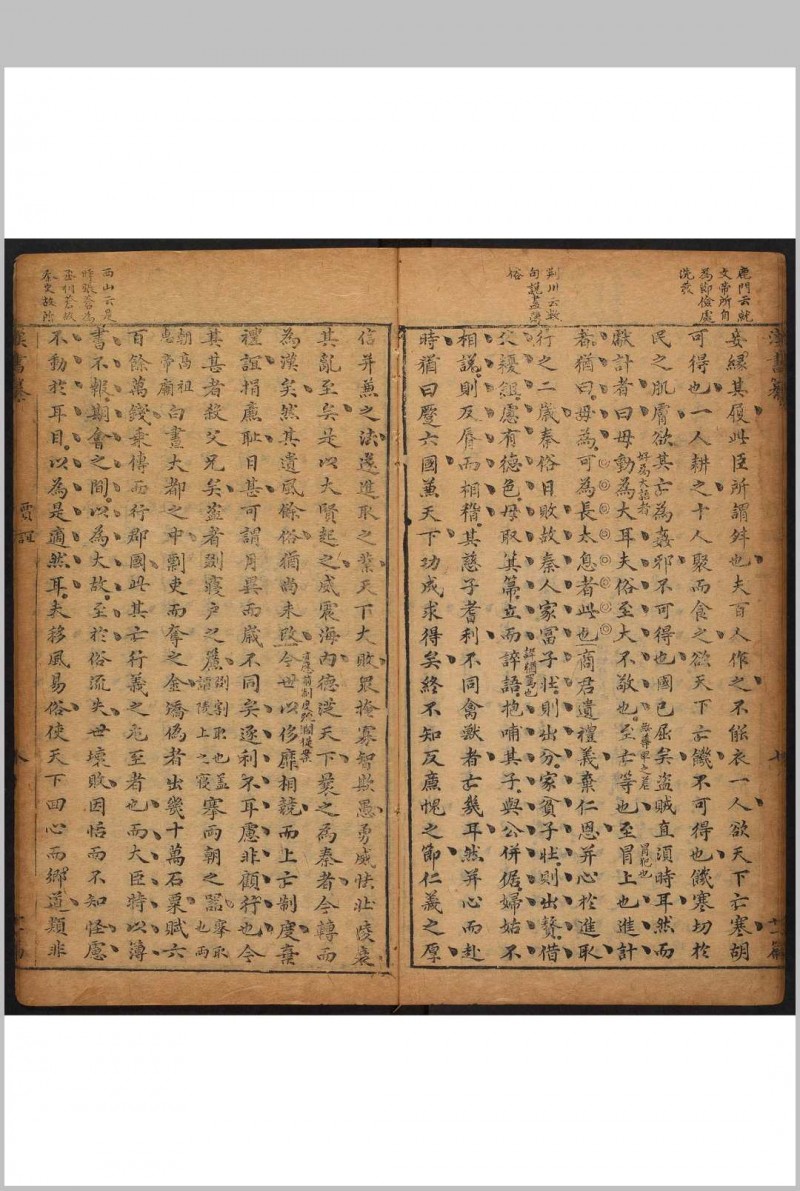 鹿門云就
文帝所自
為節儉處
洗發
荆川云數
句說盡薄
俗
妾緣其履此臣所謂舛也夫百人作之不能衣一人欲天下亡寒胡
可得也一人耕之十人聚而食之欲天下亡饑不可得也饑寒切於
民之肌膚欲其亡為姦邪不可得也國已屈矣盜賊直須時耳然而
獻計者曰毋動為大耳夫俗至大不敬也至亡等也至冒上也進計
好為大語者
無尊卑之差
冒犯也
者猶曰毋為可為長太息者此也商君遺禮義棄仁恩并心於進取
行之二歲秦俗日敗故秦人家富子壯則出分家貧子壯則出贅借
父耰鉏慮有德色母取其箒立而誶語抱哺其子與公併倨婦姑不
誶猶罵也
相說則反唇而相稽其慈子耆利不同禽獸者亡幾耳然并心而赴
時猶曰蹷六國兼天下功成求得矣終不知反廉愧之節仁義之厚
信并兼之法遂進取之業天下大敗眾掩寡智欺愚勇威怯壯陵衰
其亂至矣是以大賢起之威震海內德從天下曩之為秦者今轉而
為漢矣然其遺風餘俗猶尚未改今世以侈靡相競而上亡制度棄
禮誼捐廉耻日甚可謂月異而歲不同矣逐利不耳慮非顧行也今
其甚者殺父兄矣盜者剟寢戶之簾
剟割取也蓋
譚陵上之寢
搴兩廟之器
搴取
也兩
廟高祖
惠帝廟
白晝大都之中剽吏而奪之金矯偽者出幾十萬石粟賦六
百餘萬錢乘傳而行郡國此其亡行義之尤至者也而大臣特以簿
書不報期會之間以為大故至於俗流失世壞敗因恬而不知怪慮
不動於耳目以為是適然耳夫移風易俗使天下回心而鄉道類非
西山云是
時張蒼為
丞相蒼故
秦吏故除
賈誼